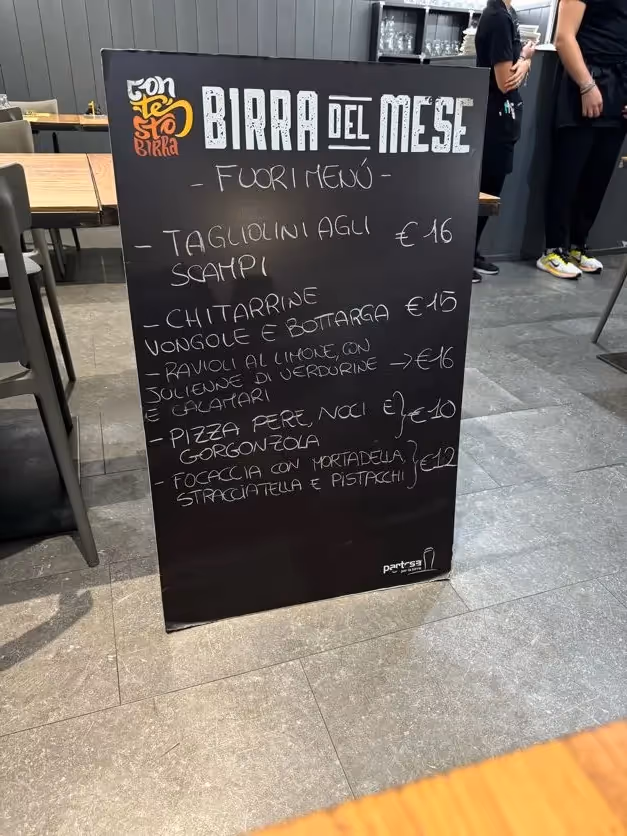 con
te
sto
BIRRA
BIRRA DEL MESE
- FUORI MENÚ -
- TAGLIOLINI AGLI € 16
SCAMPI
- CHITARRINE € 15
VONGOLE E BOTTARGA
- RAVIOLI AL LIMONE, CON
JULIENNE DI VERDURINE → €16
E CALAMARI
- PIZZA PERE, NOCI E } €10
GORGONZOLA
- FOCACCIA CON MORTADELLA, } €12
STRACCIATELLA E PISTACCHI
partesa